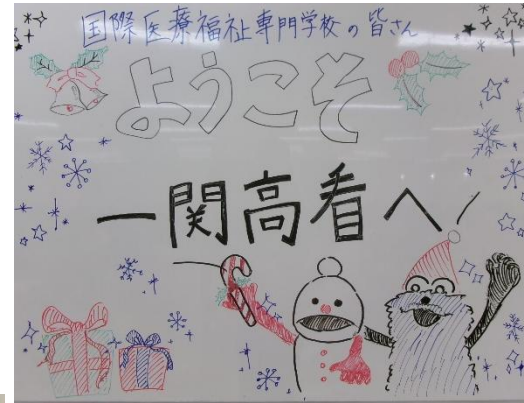 国際医療福祉専門学校の皆さん
ようこそ
一関高看へ